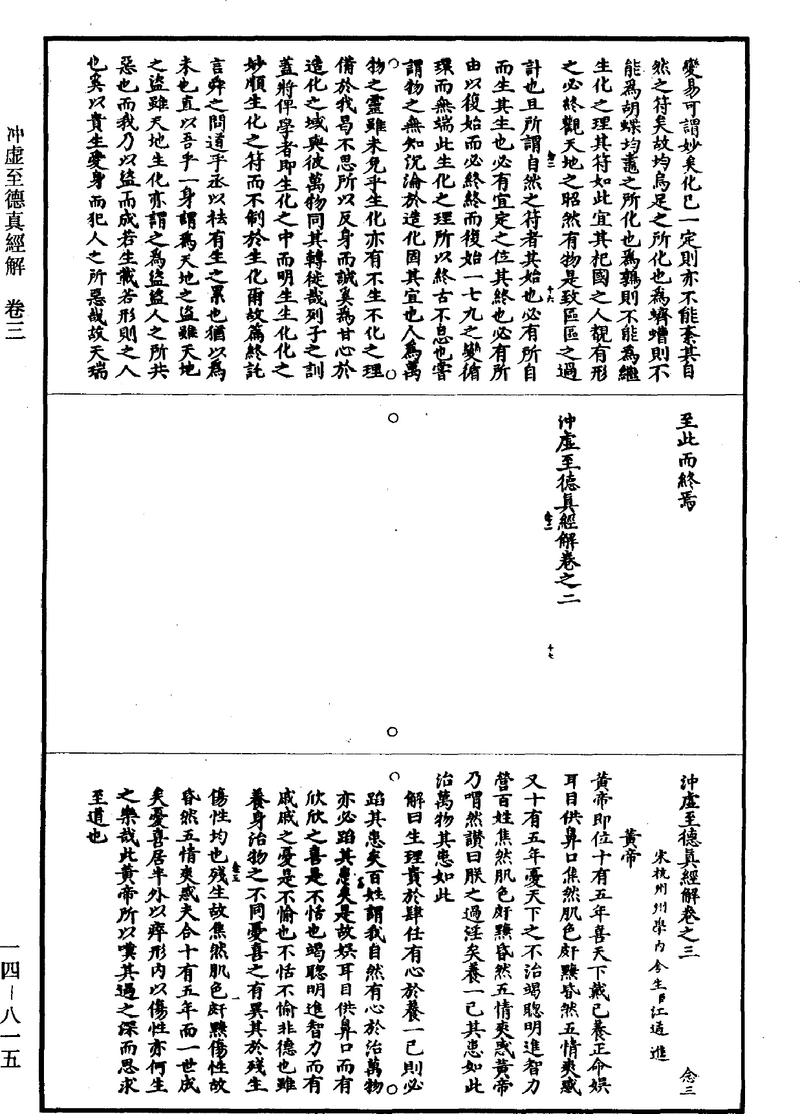 變易可謂妙矣化已一定則亦不能紊其自
然之符矣故均烏足之所化也為蠐螬則不
能為胡蝶均𪃟之所化也為鷂則不能為鸇
生化之理其符如此宜其杞國之人覩有形
之必終觀天地之昭然有物是致區區之過
計也且所謂自然之符者其始也必有所自
而生其生也必有宜定之位其終也必有所
由以復始而必終終而復始一七九之變循
環而無端此生化之理所以終古不息也嘗
謂物之無知沉淪於造化固其宜也人為萬
物之靈雖未免乎生化亦有不生不化之理
備於我曷不思所以反身而誠奚為甘心於
造化之域與彼萬物同其轉徙哉列子之訓
蓋將俾學者即生化之中而明生生化化之
妙順生化之符而不制於生化爾故篇終託
言舜之問道乎丞以祛有生之累也猶以為
未也直以吾乎一身謂為天地之盜雖天地
之盜雖天地生化亦謂之為盜盜人之所共
惡也而我乃以盜而成若生載若形則之人
也奚以貴生愛身而犯人之所惡哉故天瑞
至此而終焉
沖虛至德真經解卷之二
沖虛至德真經解卷之三
念三
宋杭州州學內舍生臣江遹進
黃帝
黃帝即位十有五年喜天下戴己養正命娛
耳目供鼻口焦然肌色皯黣昏然五情爽惑
又十有五年憂天下之不治竭聰明進智力
營百姓焦然肌色皯黣昏然五情爽惑黃帝
乃喟然讚曰朕之過淫矣養一己其患如此
治萬物其患如此
解曰生理貴於肆任有心於養一己則必
蹈其患矣百姓謂我自然有心於治萬物
亦必蹈其患矣是故娛耳目供鼻口而有
欣欣之喜是不恬也竭聰明進智力而有
戚戚之憂是不愉也不恬不愉非德也雖
養身治物之不同憂喜之有異其於殘生
傷性均也殘生故焦然肌色皯黣傷性故
昏然五情爽惑夫合十有五年而一世成
矣憂喜居半外以瘁形內以傷性亦何生
之樂哉此黃帝所以嘆其過之深而思求
至道也
沖虛至德真經解 卷三
一四－八一五